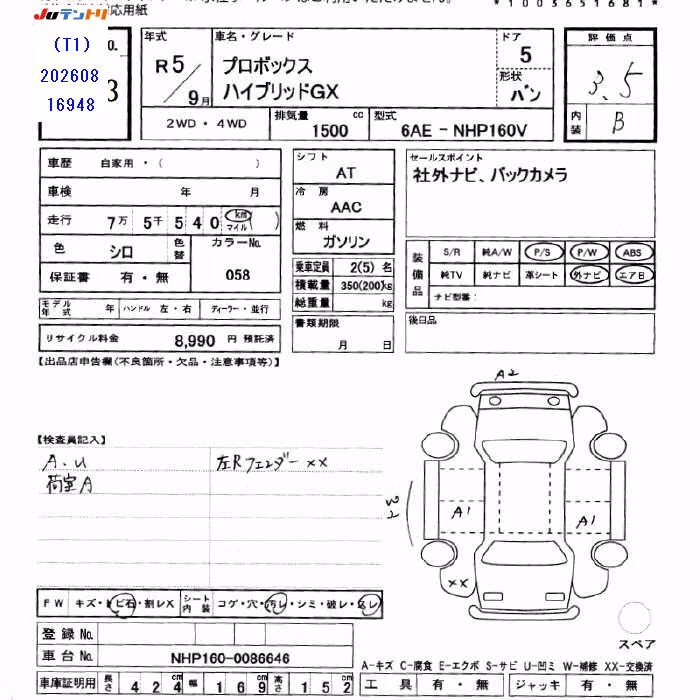 応用紙
*10036516811*
JUテントリ
(T1)
202608
16948
No.
3
年式
R5/9月
車名・グレード
プロボックス
ハイブリッドGX
ドア
5
形状
バン
評価点
3.5
内装
B
2WD・4WD
排気量
1500 cc
型式
6AE-NHP160V
車歴 自家用・( )
車検 年 月
走行 7万 5千 5 4 0 km マイル ( )
色 シロ 色替 カラーNo. 058
保証書 有・無
モデル年式 年 ハンドル 左・右 ディーラー・並行
リサイクル料金 8,990 円 預託済
シフト
AT
冷房
AAC
燃料
ガソリン
乗車定員 2(5) 名
積載量 350(200)kg
総重量 kg
書類期限
月 日
セールスポイント
社外ナビ、バックカメラ
装備品
S/R 純A/W P/S P/W ABS
純TV 純ナビ 革シート 外ナビ エアB
ナビ型番:
後日品
【出品店申告欄(不良箇所・欠品・注意事項等)】
【検査員記入】
A.U 左Rフェンダー××
荷室A
A2
W3
A1 A1
××
スペア
FW キズ・トビ石・割レX シート内装 コゲ・穴・汚レ・シミ・破レ・スレ
登録No.
車台No. NHP160-0086646
車庫証明用 長さ 424cm 幅 169cm 高さ 152cm
A-キズ C-腐食 E-エクボ S-サビ U-凹ミ W-補修 XX-交換済
工具 有・無 ジャッキ 有・無